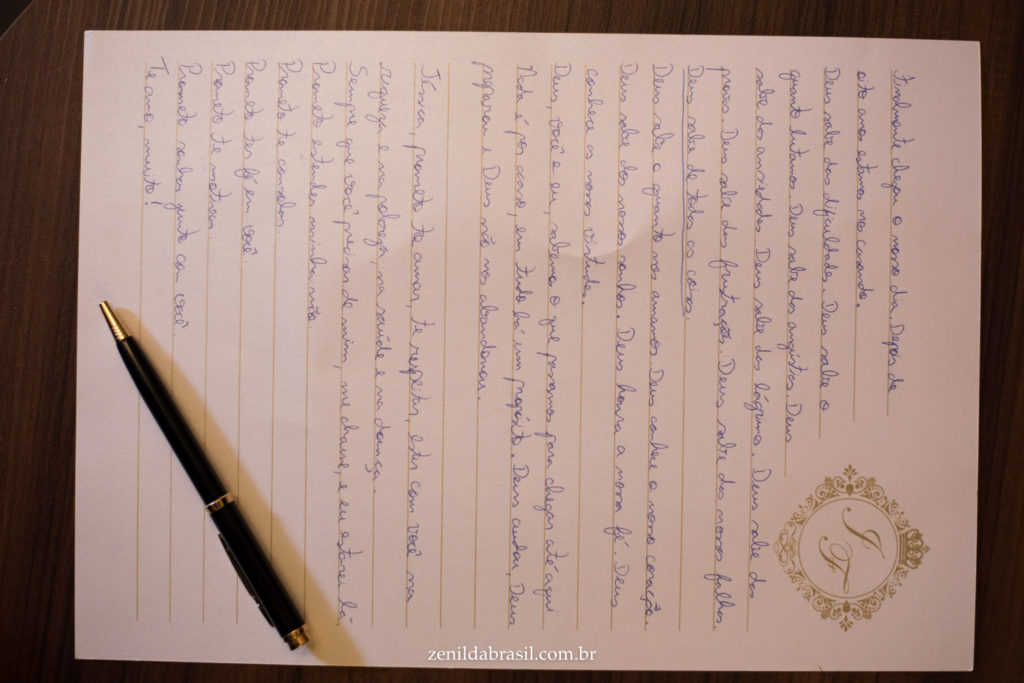 Finalmente chegou o nosso dia. Depois de
oito anos estamos nos casando.
Deus sabe das dificuldades. Deus sabe o
quanto lutamos. Deus sabe das angústias. Deus
sabe das ansiedades. Deus sabe das lágrimas. Deus sabe das
provas. Deus sabe das frustrações. Deus sabe das nossas falhas.
Deus sabe de todas as coisas.
Deus sabe o quanto nos amamos. Deus conhece o nosso coração.
Deus sabe dos nossos sonhos. Deus honra a nossa fé. Deus
conhece as nossas virtudes.
Deus, você e eu, sabemos o que passamos para chegar até aqui
Nada é por acaso, em tudo há um propósito. Deus cuidou, Deus
preparou e Deus não nos abandonou.
Jéssica, prometo te amar, te respeitar, estar com você na
riqueza e na pobreza, na saúde e na doença.
Sempre que você precisar de mim, me chame, e eu estarei lá.
Prometo estender minha mão
Prometo te consolar
Prometo ter fé em você
Prometo te motivar
Prometo sonhar junto com você
Te amo, muito!
J F
zenildabrasil.com.br